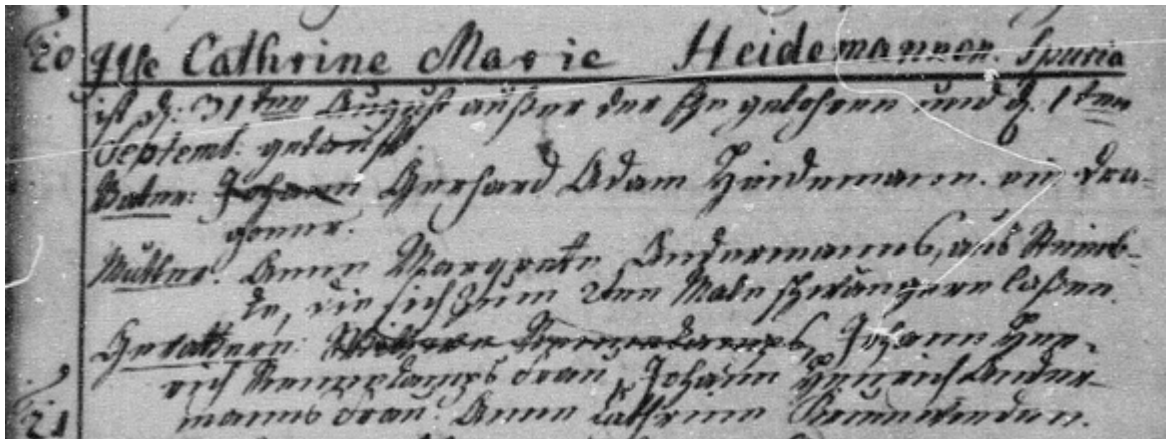 20 Ilse Cathrine Marie Heidemannen. Spuria
ist d: 31ten August außer der Ehe gebohren und d. 1ten
Septemb: getauft.
Vater: Johann Gerhard Adam Heidemann. ein Dra-
goner.
Mutter. Anne Margrete Andermanns, aus
die sich zum 2ten Male schwängern laßen.
Gevattern: Johann Hen-
rich Frau, Johann Henrich Ander-
21 manns Frau. Anne Cathrine